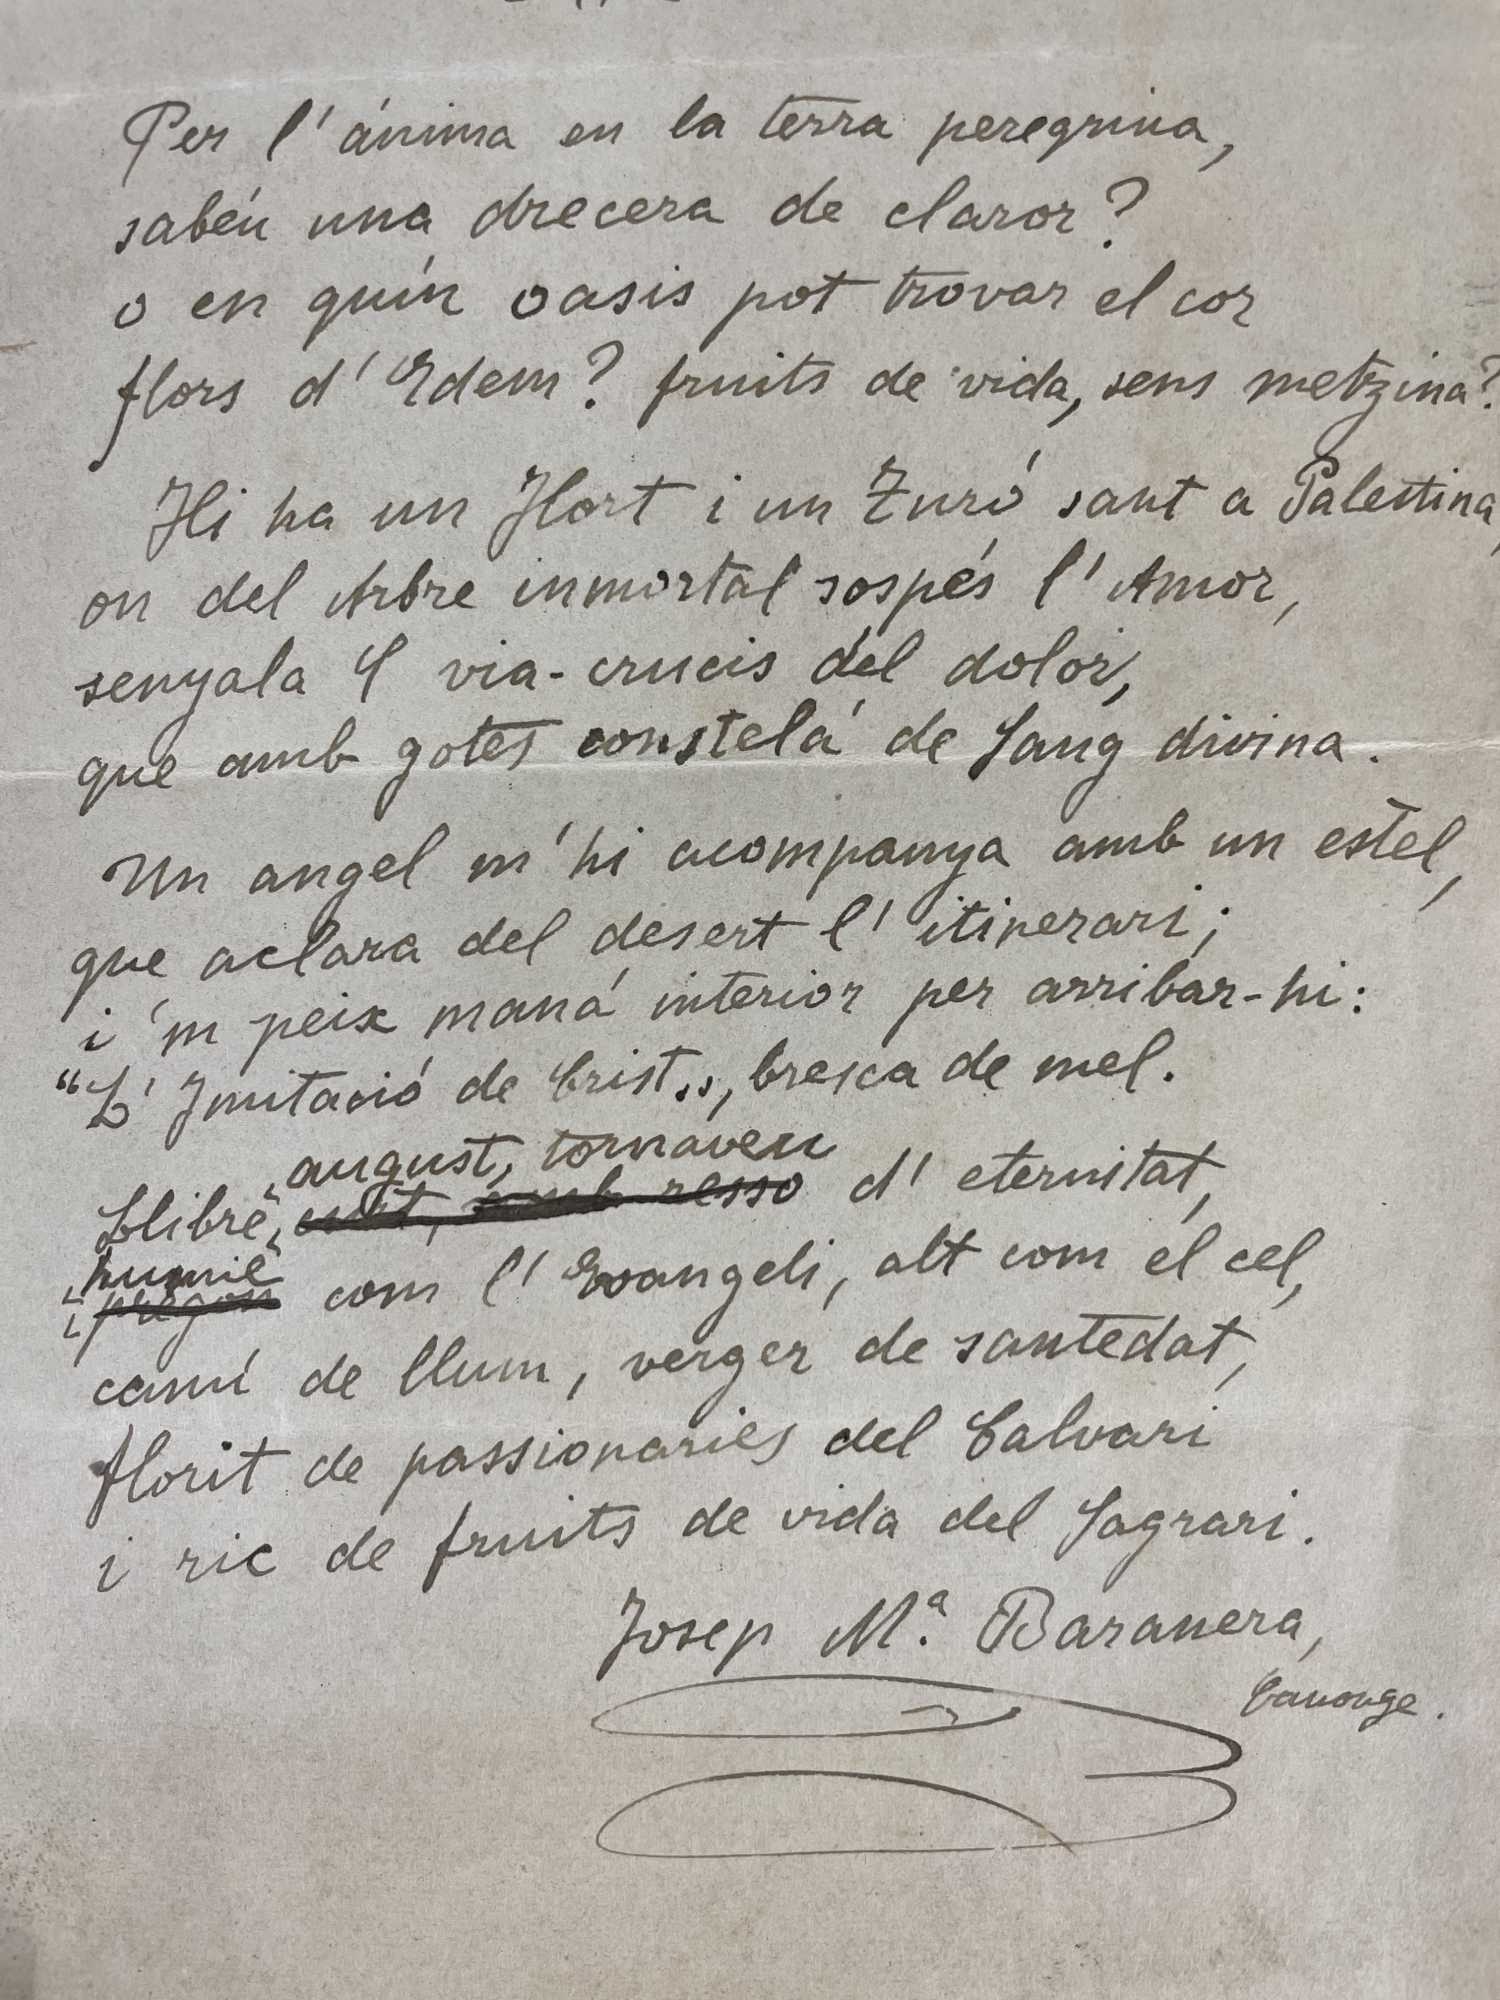 Per l'ánima en la terra peregrina,
sabéu una drecera de claror?
o en quín oasis pot trovar el cor
flors d'Edem? fruits de vida, sens metzina?
Hi ha un Hort i un Turó sant a Palestina,
on del Arbre inmortal sospés l'Amor,
senyala 'l via-crucis del dolor,
que amb gotes constelá de Sang divina.
Un angel m'hi acompanya amb un estel,
que aclara del desert l'itinerari;
i 'm peix maná interior per arribar-hi:
"L'Imitació de Crist", bresca de mel.
august, tornaveu
Llibre, amb resso d'eternitat,
humil
i pregon com l'Evangeli, alt com el cel,
camí de llum, verger de santedat,
florit de passionaries del Calvari
i ric de fruits de vida del Sagrari.
Josep Mª. Baranera,
Canonge.